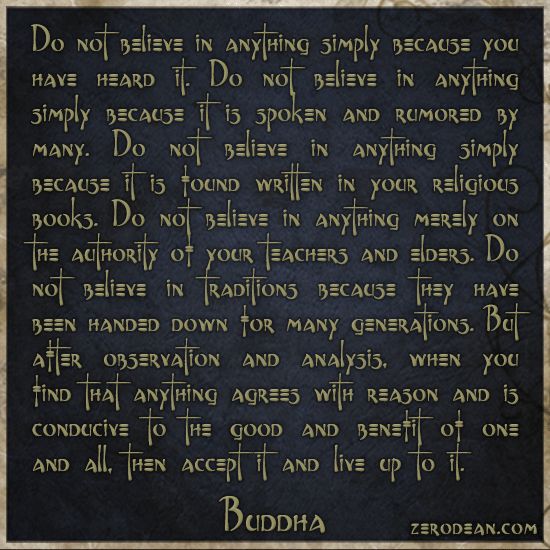 Do not believe in anything simply because you
have heard it. Do not believe in anything
simply because it is spoken and rumored by
many. Do not believe in anything simply
because it is found written in your religious
books. Do not believe in anything merely on
the authority of your teachers and elders. Do
not believe in traditions because they have
been handed down for many generations. But
after observation and analysis, when you
find that anything agrees with reason and is
conducive to the good and benefit of one
and all, then accept it and live up to it.
Buddha
zerodean.com